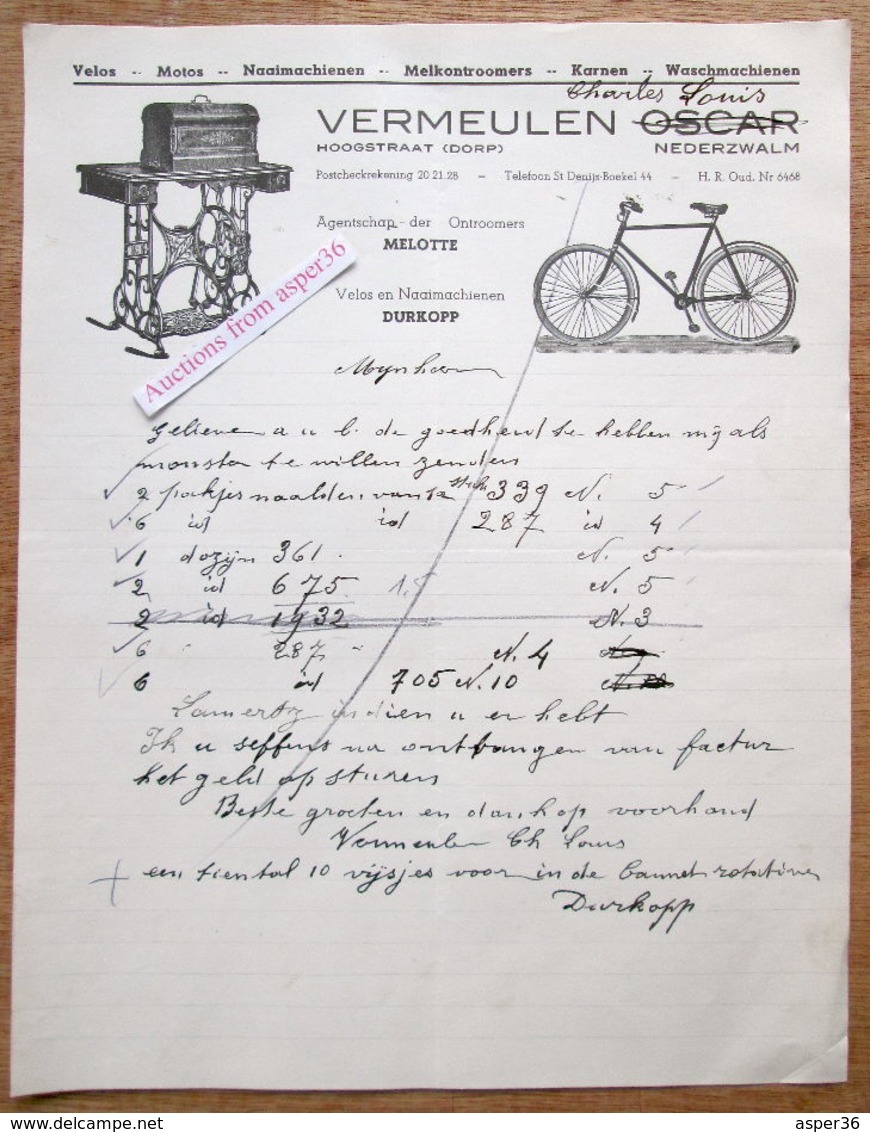 Velos -- Motos -- Naaimachienen -- Melkontroomers -- Karnen -- Waschmachienen
Charles Louis
VERMEULEN OSCAR
HOOGSTRAAT (DORP) NEDERZWALM
Postcheckrekening 20 21.28 – Telefoon St Denijs-Boekel 44 – H. R. Oud. Nr 6468
Agentschap der Ontroomers
MELOTTE
Velos en Naaimachienen
DURKOPP
Auctions from asper36
Mynheer
gelieve a u b. de goedheid te hebben mij als
monster te willen zenden
2 pakjes naalden van 339 N. 5
6 id id 287 id 4
1 dozijn 361 N. 5
2 id 675 1,5 N. 5
2 id 1932 N. 3
6 " 287 " N. 4
6 id 705 N. 10
Lamertz indien u er hebt
Ik u seffens na ontvangen van factur
het geld op sturen
Beste groeten en dank op voorhand
Vermeulen Ch Louis
+ een tiental 10 vijsjes voor in de rotative
Durkopp
asper36